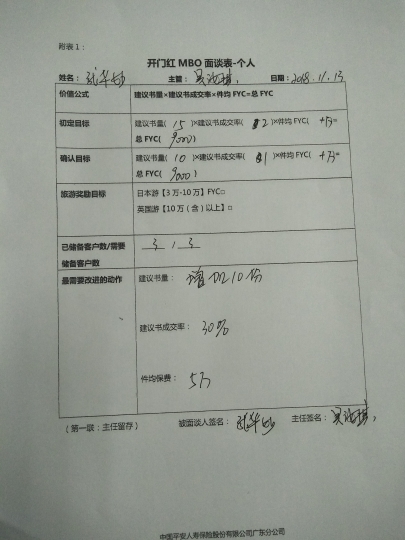 附表1：
开门红 MBO 面谈表-个人
姓名： 主管： 日期：2018.11.13
价值公式 建议书量×建议书成交率×件均 FYC=总 FYC
初定目标 建议书量( 15 )×建议书成交率( 2 )×件均 FYC( 十万=
总 FYC( 9000 )
确认目标 建议书量( 10 )×建议书成交率( 1 )×件均 FYC( 十万=
总 FYC( 9000 )
旅游奖励目标 日本游【3 万-10 万】FYC□
英国游【10 万（含）以上】□
已储备客户数/需要 3 / 3
储备客户数
最需要改进的动作 建议书量： 增加10份
建议书成交率： 30%
件均保费： 5万
（第一联：主任留存） 被面谈人签名： 主任签名：
中国平安人寿保险股份有限公司广东分公司